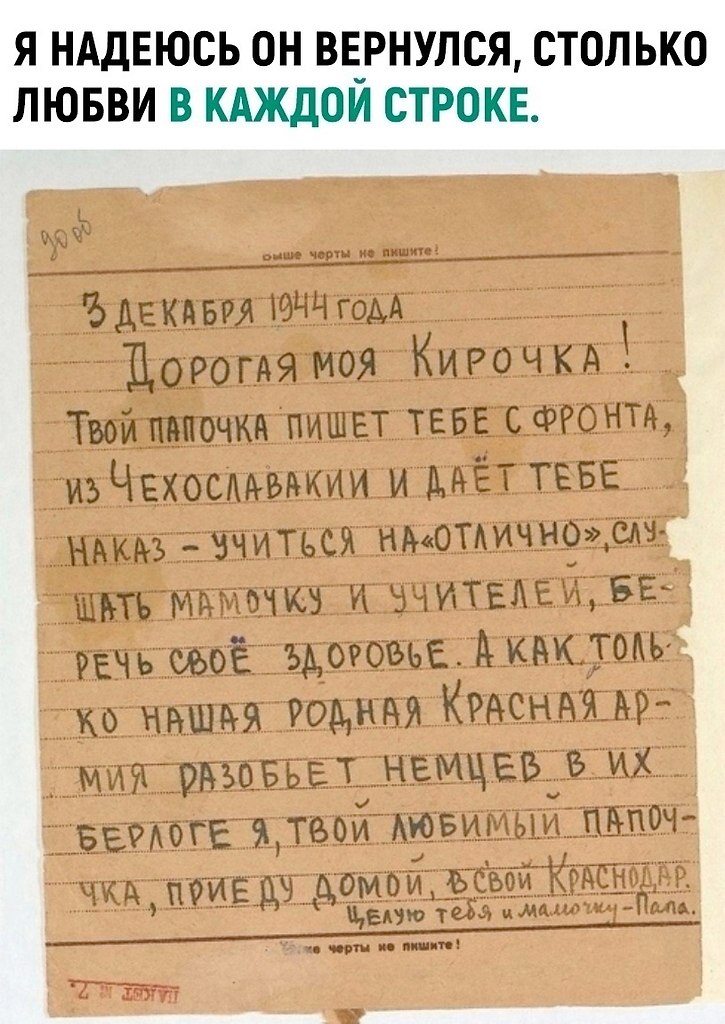 Я НАДЕЮСЬ ОН ВЕРНУЛСЯ, СТОЛЬКО
ЛЮБВИ В КАЖДОЙ СТРОКЕ.
выше черты не пишите!
3 ДЕКАБРЯ 1944 ГОДА
ДОРОГАЯ МОЯ КИРОЧКА!
ТВОЙ ПАПОЧКА ПИШЕТ ТЕБЕ С ФРОНТА,
ИЗ ЧЕХОСЛАВАКИИ И ДАЁТ ТЕБЕ
НАКАЗ – УЧИТЬСЯ НА «ОТЛИЧНО», СЛУ-
ШАТЬ МАМОЧКУ И УЧИТЕЛЕЙ, БЕ-
РЕЧЬ СВОЁ ЗДОРОВЬЕ. А КАК ТОЛЬ-
КО НАШАЯ РОДНАЯ КРАСНАЯ АР-
МИЯ РАЗОБЬЕТ НЕМЦЕВ В ИХ
БЕРЛОГЕ Я, ТВОЙ ЛЮБИМЫЙ ПАПОЧ-
ЧКА, ПРИЕДУ ДОМОЙ, В СВОЙ КРАСНОДАР.
ЦЕЛУЮ тебя и мамочку – Папа.
же черты не пишите!
ПАКЕТ № 7.